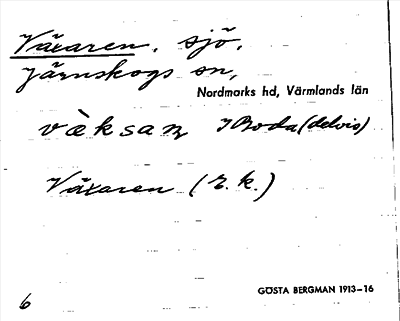 Växaren, sjö,
Järnskogs sn,
Nordmarks hd, Värmlands län
vɛ̀ksaɳ I Boda (delvis)
Växaren (r.k.)
GÖSTA BERGMAN 1913–16
6